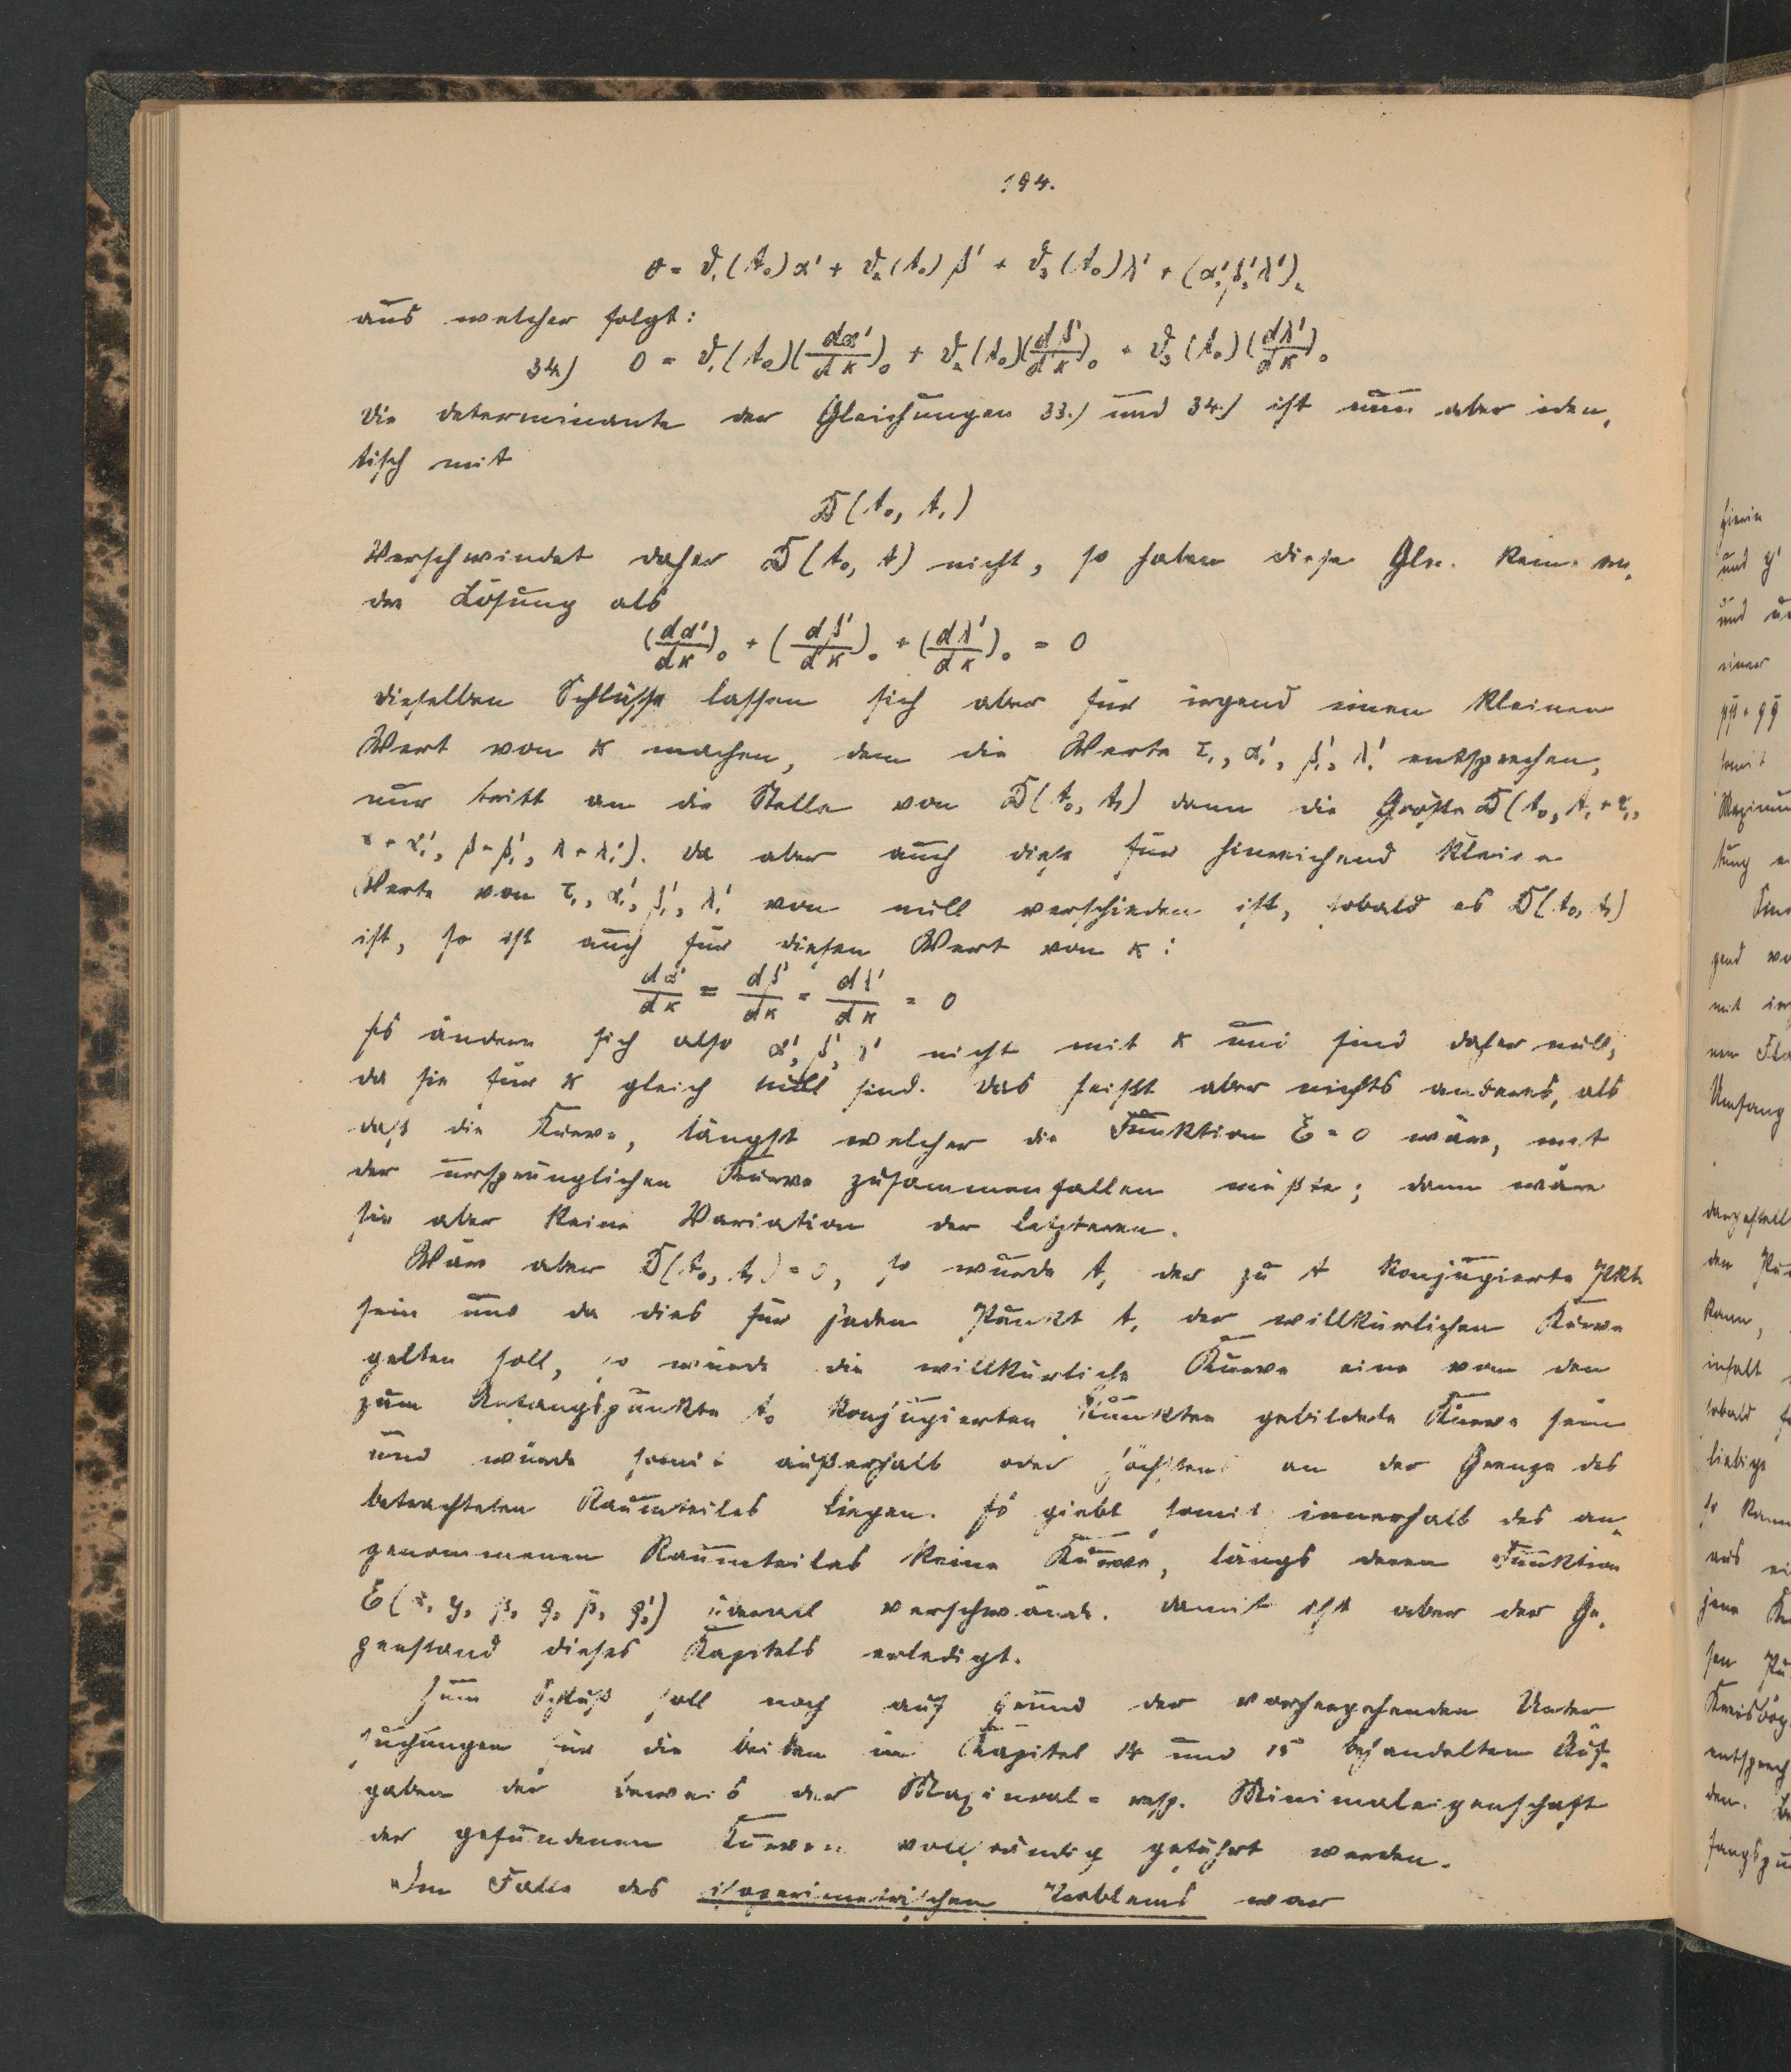 194.
0 = ϑ₁(t₀)α' + ϑ₂(t₀)β' + ϑ₃(t₀)λ' + (α',β',λ')₂
aus welcher folgt:
34.) 0 = ϑ₁(t₀)(dα'/dκ)₀ + ϑ₂(t₀)(dβ'/dκ)₀ + ϑ₃(t₀)(dλ'/dκ)₀
Die Determinante der Gleichungen 33.) und 34.) ist nun aber iden-
tisch mit
D(t₀, t₁)
Verschwindet daher D(t₀, t) nicht, so haben diese Gln. kein an-
der Lösung als
(dα'/dκ)₀ + (dβ'/dκ)₀ + (dλ'/dκ)₀ = 0
dieselben Schlüsse lassen sich aber für irgend einen kleinen
Wert von κ machen, dem die Werte τ₁, α₁', β₁', λ₁' entsprechen,
nur tritt an die Stelle von D(t₀, t₁) dann die Größe D(t₀, t₁+τ₁,
α+α₁', β+β₁', λ+λ₁'). Da aber auch diese für hinreichend kleine
Werte von τ₁, α₁', β₁', λ₁' von null verschieden ist, sobald es D(t₀, t₁)
ist, so ist auch für diesen Wert von κ:
dα'/dκ = dβ'/dκ = dλ'/dκ = 0
Es ändern sich also α', β', λ' nicht mit κ und sind daher null,
da sie für κ gleich null sind. Das heißt aber nichts anderes, als
daß die Kurve, längst welcher die Funktion E = 0 wäre, mit
der ursprünglichen Kurve zusammenfallen müßte; dann wäre
sie aber keine Variation der letzteren.
Wäre aber D(t₀, t₁) = 0, so würde t₁ der zu t konjugierte Pkt.
sein und da dies für jeden Punkt t₁ der willkürlichen Kurve
gelten soll, so würde die willkürliche Kurve eine von den
zum Anfangspunkte t₀ konjugierten Punkten gebildete Kurve sein
und würde somit außerhalb oder höchstens an der Grenze des
betrachteten Raumteiles liegen. Es giebt somit innerhalb des an-
genommenen Raumteiles keine Kurve, längs deren Funktion
E(x, y, p, q, p̄, q̄) überall verschwände. Damit ist aber der Ge-
genstand dieses Kapitels erledigt.
Zum Schluß soll noch auf Grund der vorhergehenden Unter
suchungen für die beiden im Kapitel 14 und 15 behandelten Auf-
gaben der Beweis der Maximal- resp. Minimaleigenschaft
der gefundenen Kurven vollständig geführt werden.
Im Falle des isoperimetrischen Problems war
hierin
und y'
und
einer
somit
gend
mit
Umfang
dargestell
den
kann,
inhalt
sobald
liebige
so kann
aus
jene
Kreisbog
entsprech
den.
fangspu